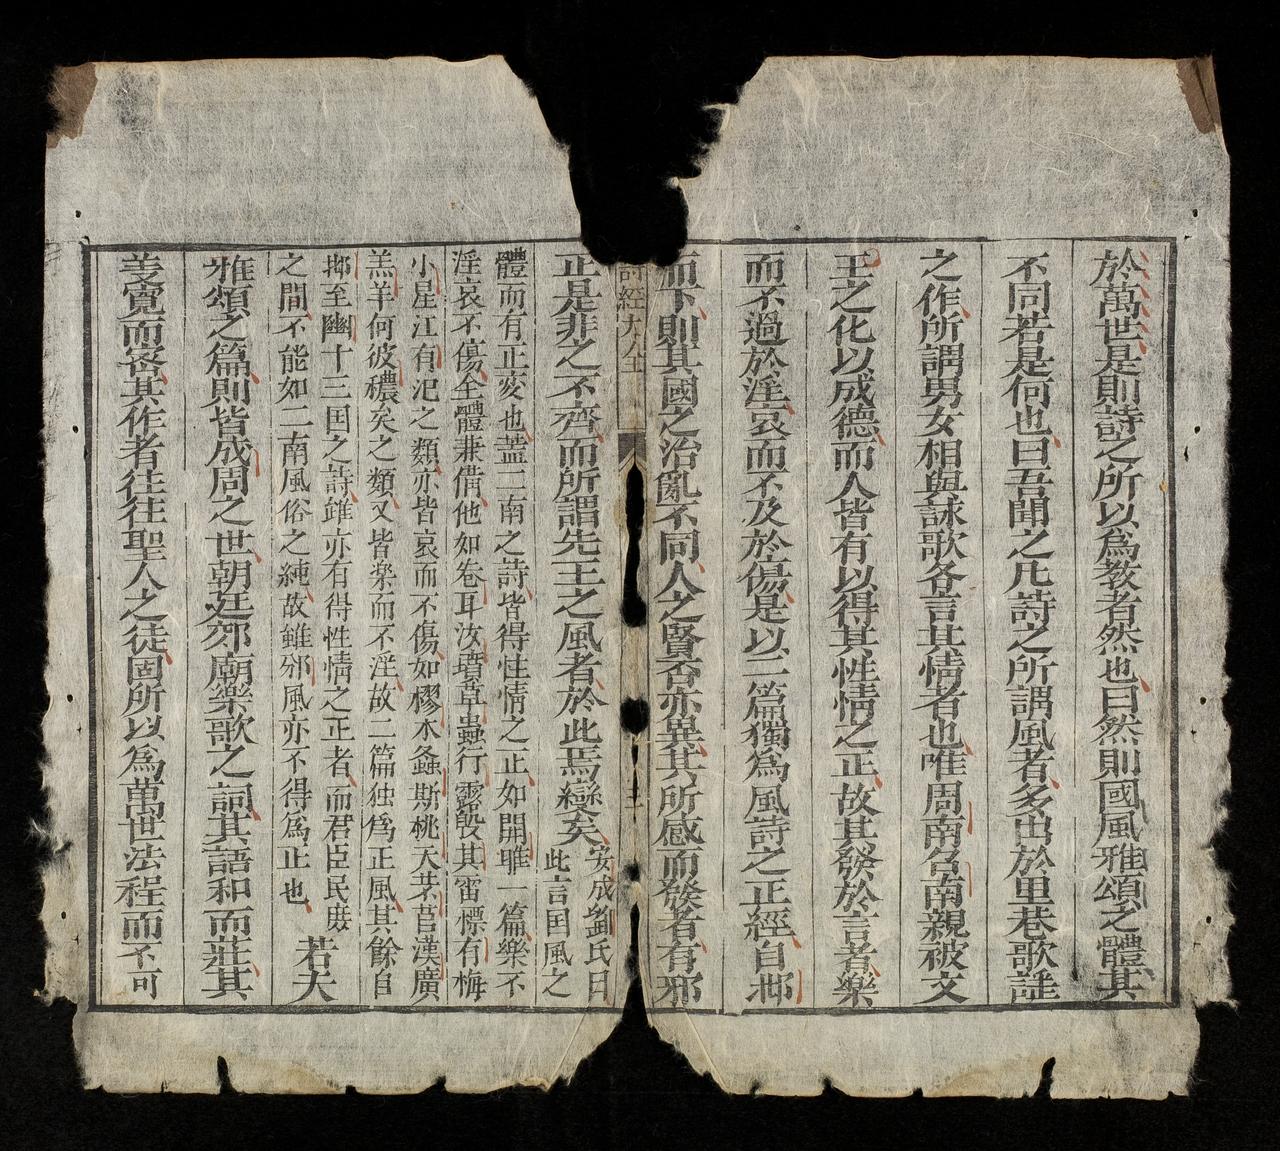 於萬世是則詩之所以為教者然也曰然則國風雅頌之體其
不同若是何也曰吾聞之凡詩之所謂風者多出於里巷歌謠
之作所謂男女相與詠歌各言其情者也唯周南召南親被文
王之化以成德而人皆有以得其性情之正故其發於言者樂
而不過於淫哀而不及於傷是以二篇獨為風詩之正經自邶
而下則其國之治亂不同人之賢否亦異其所感而發者有邪
詩經大全
正是非之不齊而所謂先王之風者於此焉變矣
安成劉氏曰
此言囯風之
體而有正变也盖二南之詩皆得性情之正如開雎一篇樂不
淫哀不傷全體兼備他如卷耳汝墳草蟲行露殷其雷摽有梅
小星江有汜之類亦皆哀而不傷如樛木螽斯桃夭芣苢漢廣
羔羊何彼穠矣之類又皆樂而不淫故二篇独為正風其餘自
邶至豳十三囯之詩雖亦有得性情之正者而君臣民庻
之間不能如二南風俗之純故雖邠風亦不得為正也
若夫
雅頌之篇則皆成周之世朝廷郊廟樂歌之詞其語和而莊其
義寬而密其作者往往聖人之徒固所以為萬世法程而不可